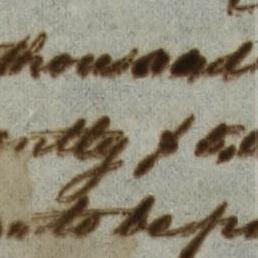 thousand
ntly $ 5,0
to be pa